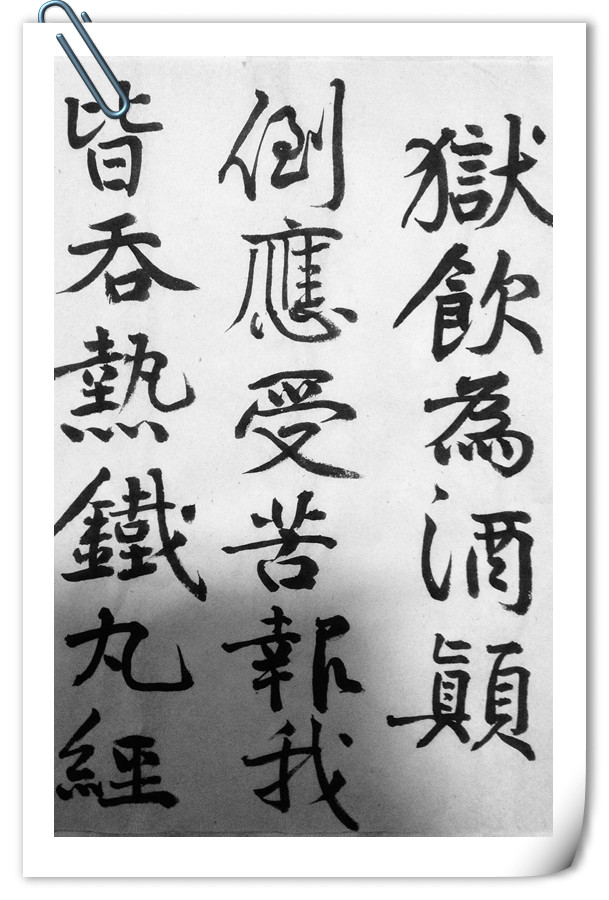 獄飲為酒顛
倒應受苦報我
皆吞熱鐵丸經